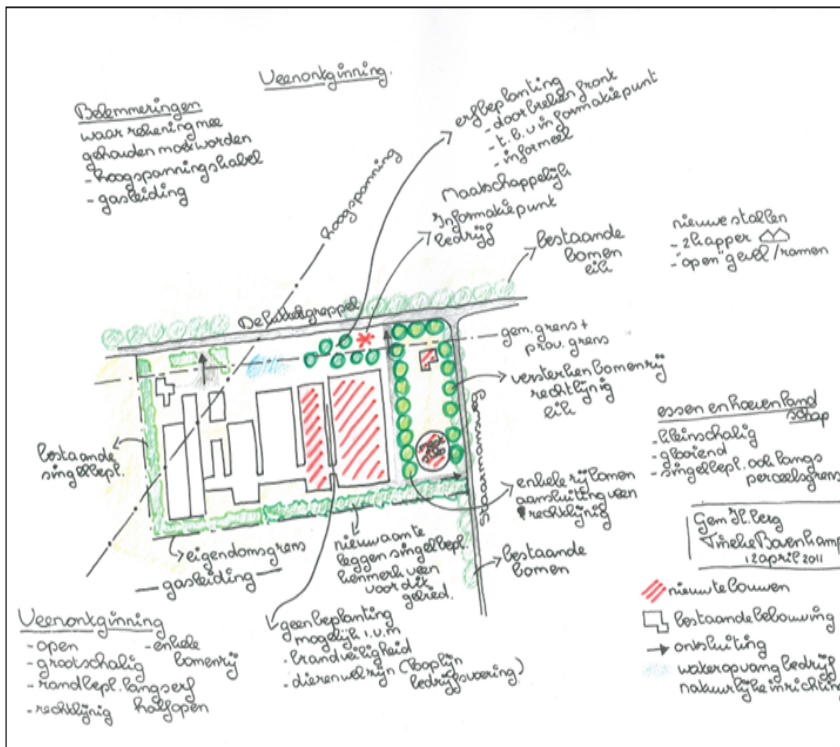 Veenontginning.
Belemmeringen
waar rekening mee
gehouden moet worden
- hoogspanningskabel
- gasleiding
erfbeplanting
- doorbreken front
- t.b.v informatiepunt
- informeel
hoogspanning
Maatschappelijk
Informatiepunt
bedrijf
bestaande
bomen
eik
nieuwe stallen
- 2 kapper
- "open" gevel/ramen
gem. grens +
prov. grens
versterken bomenrij
rechtlijnig
eik
essen en hoevenland
schap
- kleinschalig
- glooiend
- singelbepl. ook langs
perceelsgrens
bestaande
singelbepl.
enkele rij bomen
aansluiting veen
rechtlijnig
eigendomsgrens
gasleiding
nieuw aan te
leggen singelbepl.
kenmerk veen
voor dit
gebied.
bestaande
bomen
Gem H.berg
Tineke Bovenkamp
12 april 2011
nieuw te bouwen
bestaande bebouwing
ontsluiting
wateropvang bedrijf
natuurlijke inrichting
Veenontginning
- open - enkele
- grootschalig bomenrij
- randbepl. langs erf
- rechtlijnig halfopen
geen beplanting
mogelijk i.v.m
- brandveiligheid
- dierenwelzijn (looplijn
bedrijfsvoering)